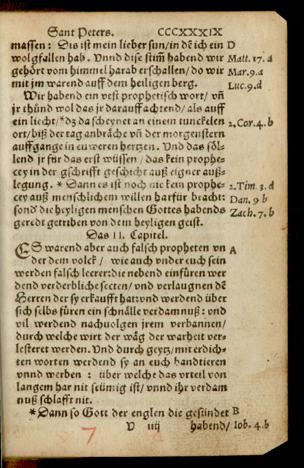 Sant Peters. CCCXXXIX
massen: Dis ist mein lieber sun/in dē ich ein D
wolgfallen hab. Vnnd dise stim̄ habend wir Matt. 17. a
gehört vom himmel harab erschallen/do wir Mar. 9. a
mit jm warend auff dem heiligen berg. Luc. 9. d
Wir habend ein vest prophetisch wort/ vn̄
jr thünd wol das jr darauff achtend/als auff
ein liecht/*dz da scheynet an einem tunckelen 2. Cor. 4. b
ort/biß der tag anbräche vn̄ der morgenstern
auffgange in euweren hertzen. Vnd das söl-
lend jr für das erst wüssen/das kein prophe-
cey in der gschrifft geschicht auß eigner auß-
legung. * Dann es ist noch nie kein prophe- 2. Tim. 3. d
cey auß menschlichem willen harfür bracht: Dan. 9. b
sond̄ die heyligen menschen Gottes habends Zach. 7. b
geredt getriben von dem heyligen geist.
Das II. Capitel.
ES warend aber auch falsch propheten vn A
der dem volck/ wie auch vnder euch sein
werden falsch leerer: die nebend einfüren wer
dend verderbliche secten/ vnd verlaugnen dē
Herren der sy erkaufft hat: vnd werdend über
sich selbs füren ein schnälle verdamnuß: vnd
vil werdend nachuolgen jrem verbannen/
durch welche wirt der wäg der warheit ver-
lesteret werden. Vnd durch geytz/mit erdich-
ten worten werdend sy an euch handtieren
vnnd werben: über welche das vrteil von
langem har nit seümig ist/ vnnd ihr verdam
nuß schlafft nit.
*Dann so Gott der englen die gesündet B
V iiij habend/ Iob. 4. b
7 8